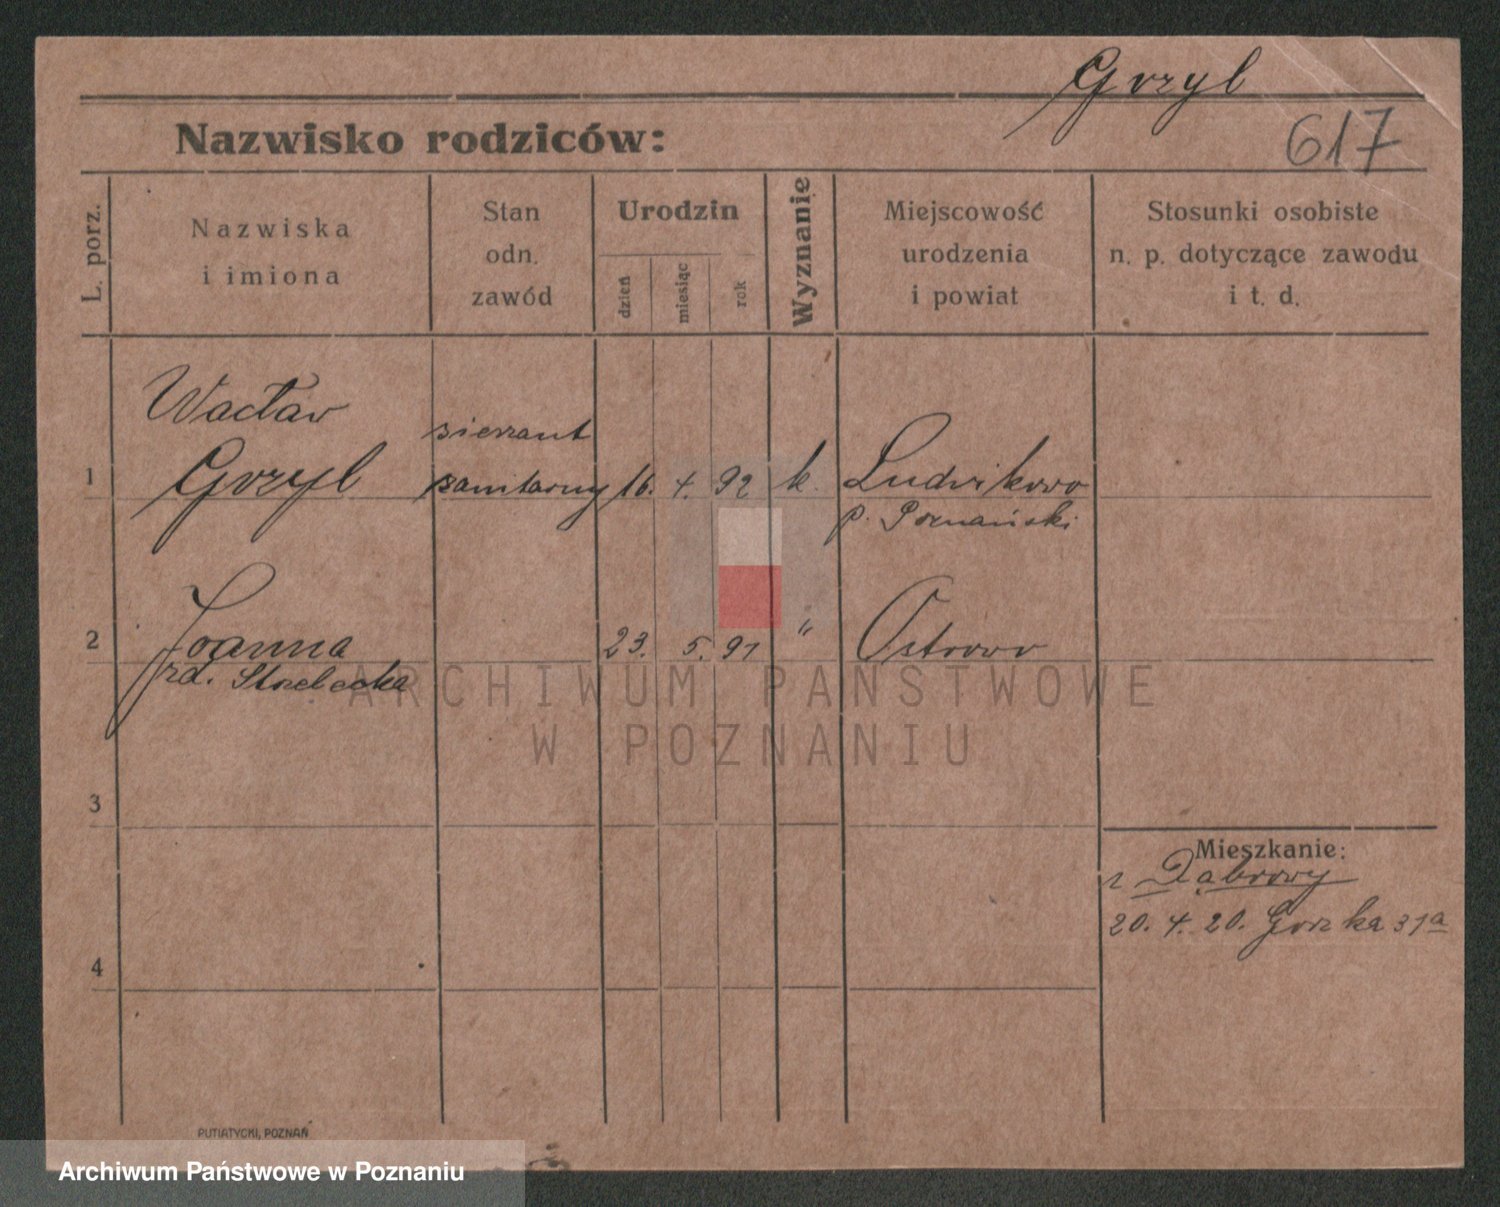 Grzyl
617
Nazwisko rodziców:
L. porz.
Nazwiska
i imiona
Stan
odn.
zawód
Urodzin
dzień
miesiąc
rok
Wyznanie
Miejscowość
urodzenia
i powiat
Stosunki osobiste
n. p. dotyczące zawodu
i t. d.
Wacław
sierzant
1 Grzyl sanitarny 16. 4. 92 k. Ludwikowo
p. Poznański
2 Joanna 23. 5. 91 " Ostrowo
rd. Strzelecka
ARCHIWUM PAŃSTWOWE
W POZNANIU
3
Mieszkanie:
z Dąbrowy
20. 4. 20. Gorzka 31a
4
PUTIATYCKI, POZNAŃ
Archiwum Państwowe w Poznaniu